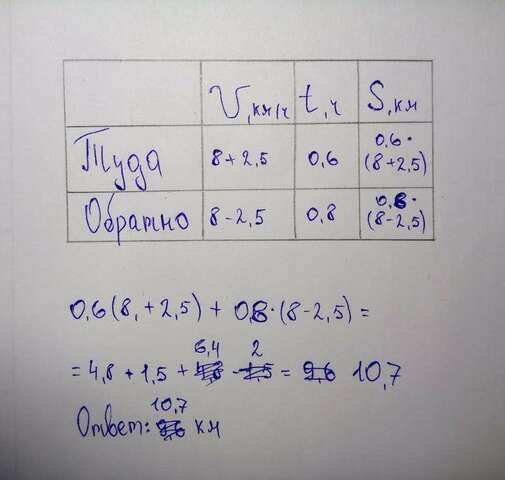 V, км/ч t, ч S, км
Туда 8+2,5 0,6 0,6·(8+2,5)
Обратно 8-2,5 0,8 0,8·(8-2,5)
0,6(8,+2,5) + 0,8·(8-2,5) =
= 4,8 + 1,5 + 6,4 - 2 = 10,7
Ответ: 10,7 км